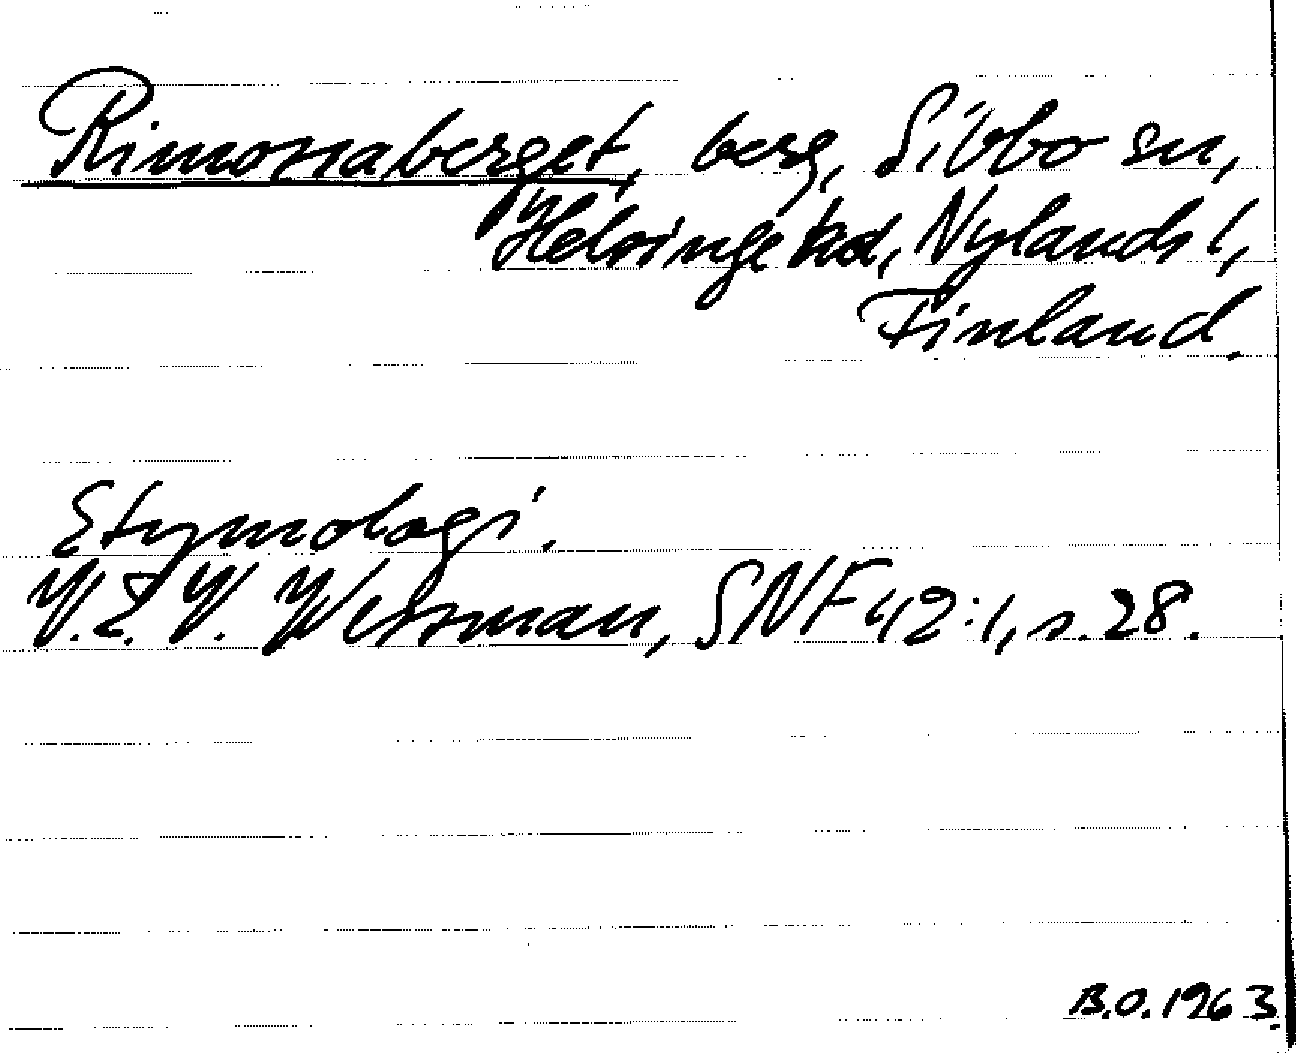 Rimossaberget, berg, Sibbo sn,
Helsinge hd, Nylands l,
Finland.
Etymologi.
V.E.V. Wessman, SNF 42:1, s. 28.
B.O. 1963.